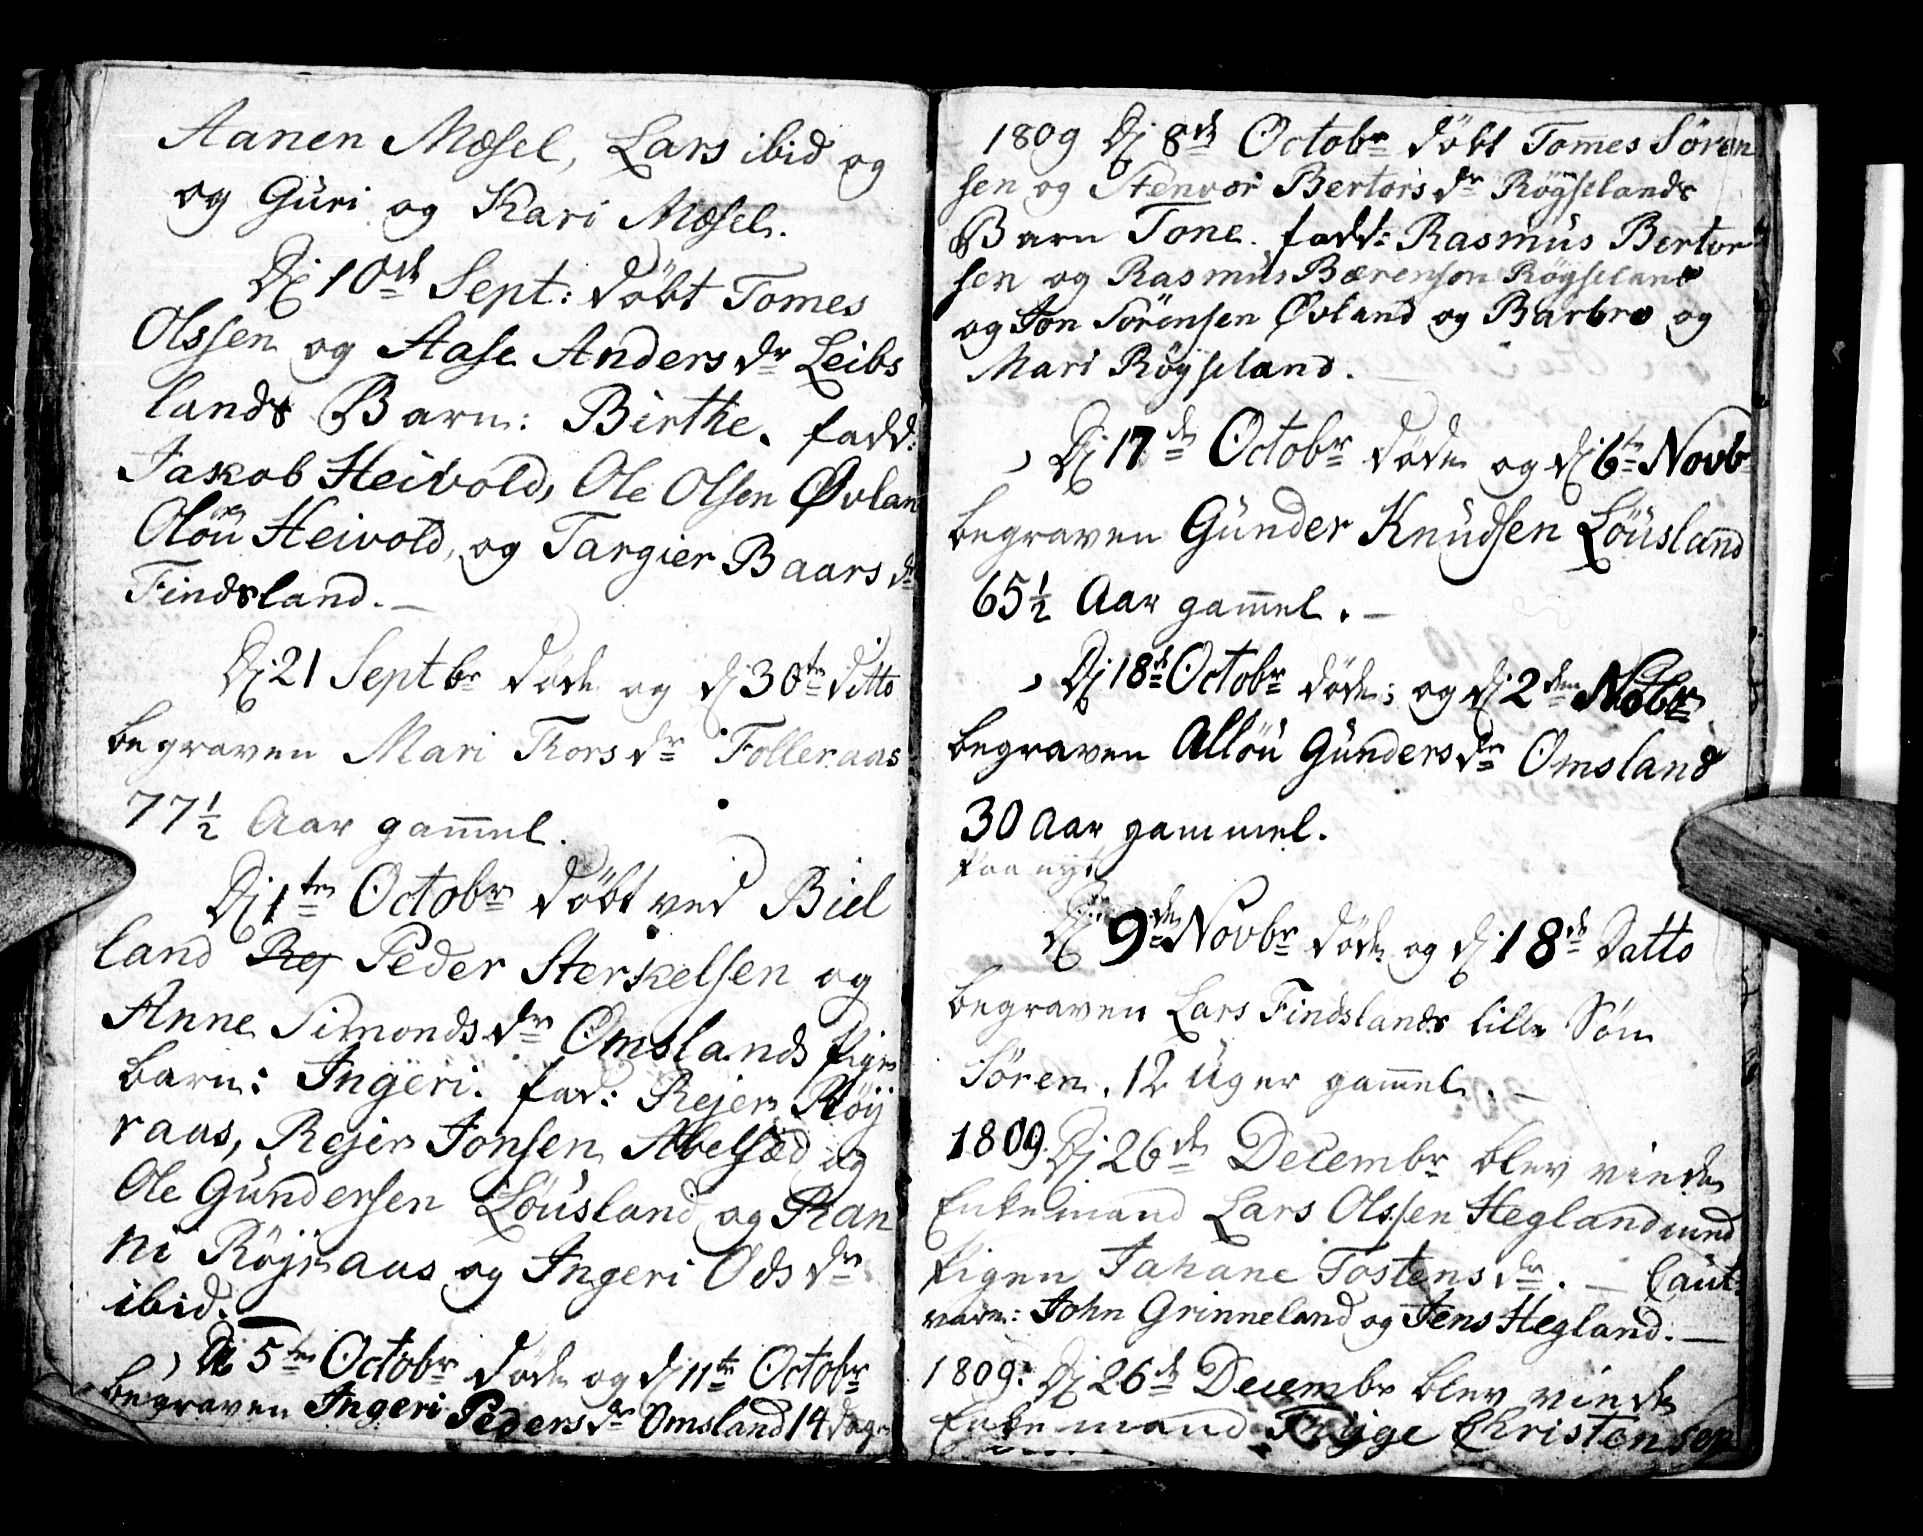 Aanen Mæsel, Lars ibid og
og Guri og Kari Mæsel.
Dj 10de Sept: døbt Tomes
Olssen og Aase Anders dr Leibs
lands Barn: Birthe. fadd:
Jakob Heivold, Ole Olsen Øvlan
Olou Heivold, og Targier Baars dr
Findsland.—
Dj 21 Septbr døde og dj 30te ditto
begraven Mari Thors dr Folleraas
77 1/2 Aar gam̅el.
Dj 1te Octobr døbt ved Biel
land Rej Peder Sterkelsen og
Anne Simonds dr Omslands Pige
barn: Ingeri. fad: Rejer Røÿ
raas, Rejer Jonsen Abelsæd og
Ole Gundersen Løusland og Ran
ni Røjraas og Ingeri Ods dr
ibid.—
Dj 5te Octobr døde og dj 11te Octobr
begraven Ingeri Peders dr Omsland 14 dage
1809 Dj 8de Octobr døbt Tom̅es Søren
sen og Stenvor Bertors dr Røÿselands
Barn Tone. fadd: Rasmus Bertor
sen og Rasmus Bærensen Røÿseland
og Jon Sørensen Øvland og Barbro og
Mari Røÿseland.
Dj 17de Octobr døde og dj 6te Novbr
begraven Gunder Knudsen Løusland
65 1/2 Aar gam̅el.—
Dj 18de Octobr døde; og dj 2den Nobr
begraven Alløu Gunders dr Omsland
30 Aar gammel.
paa nyt
Dj 9de Novbr døde og dj 18de Datto
begraven Lars Findslands lille Søn
Søren. 12 Uger gam̅el.—
1809. Dj 26de Decembr blev viede
Enkemand Lars Olssen Hegland med
Pigen Jahane Tostens dr.— Caut:
vare: John Grinneland og Jens Hegland.—
1809: Dj 26de Decembr blev viede
Enkemand Trÿge Christensen